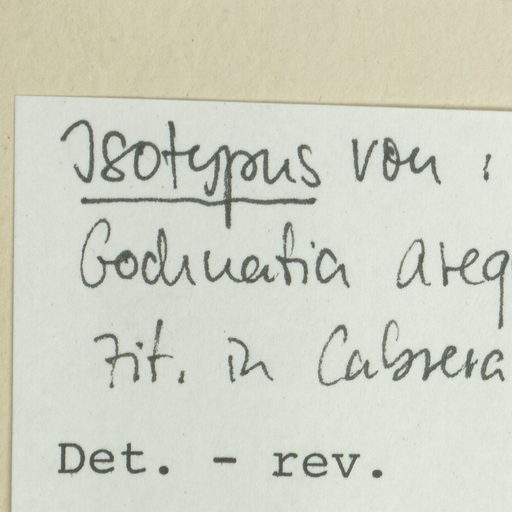 Isotypus von :
Gochnatia areq
zit. in Cabrera
Det. - rev.